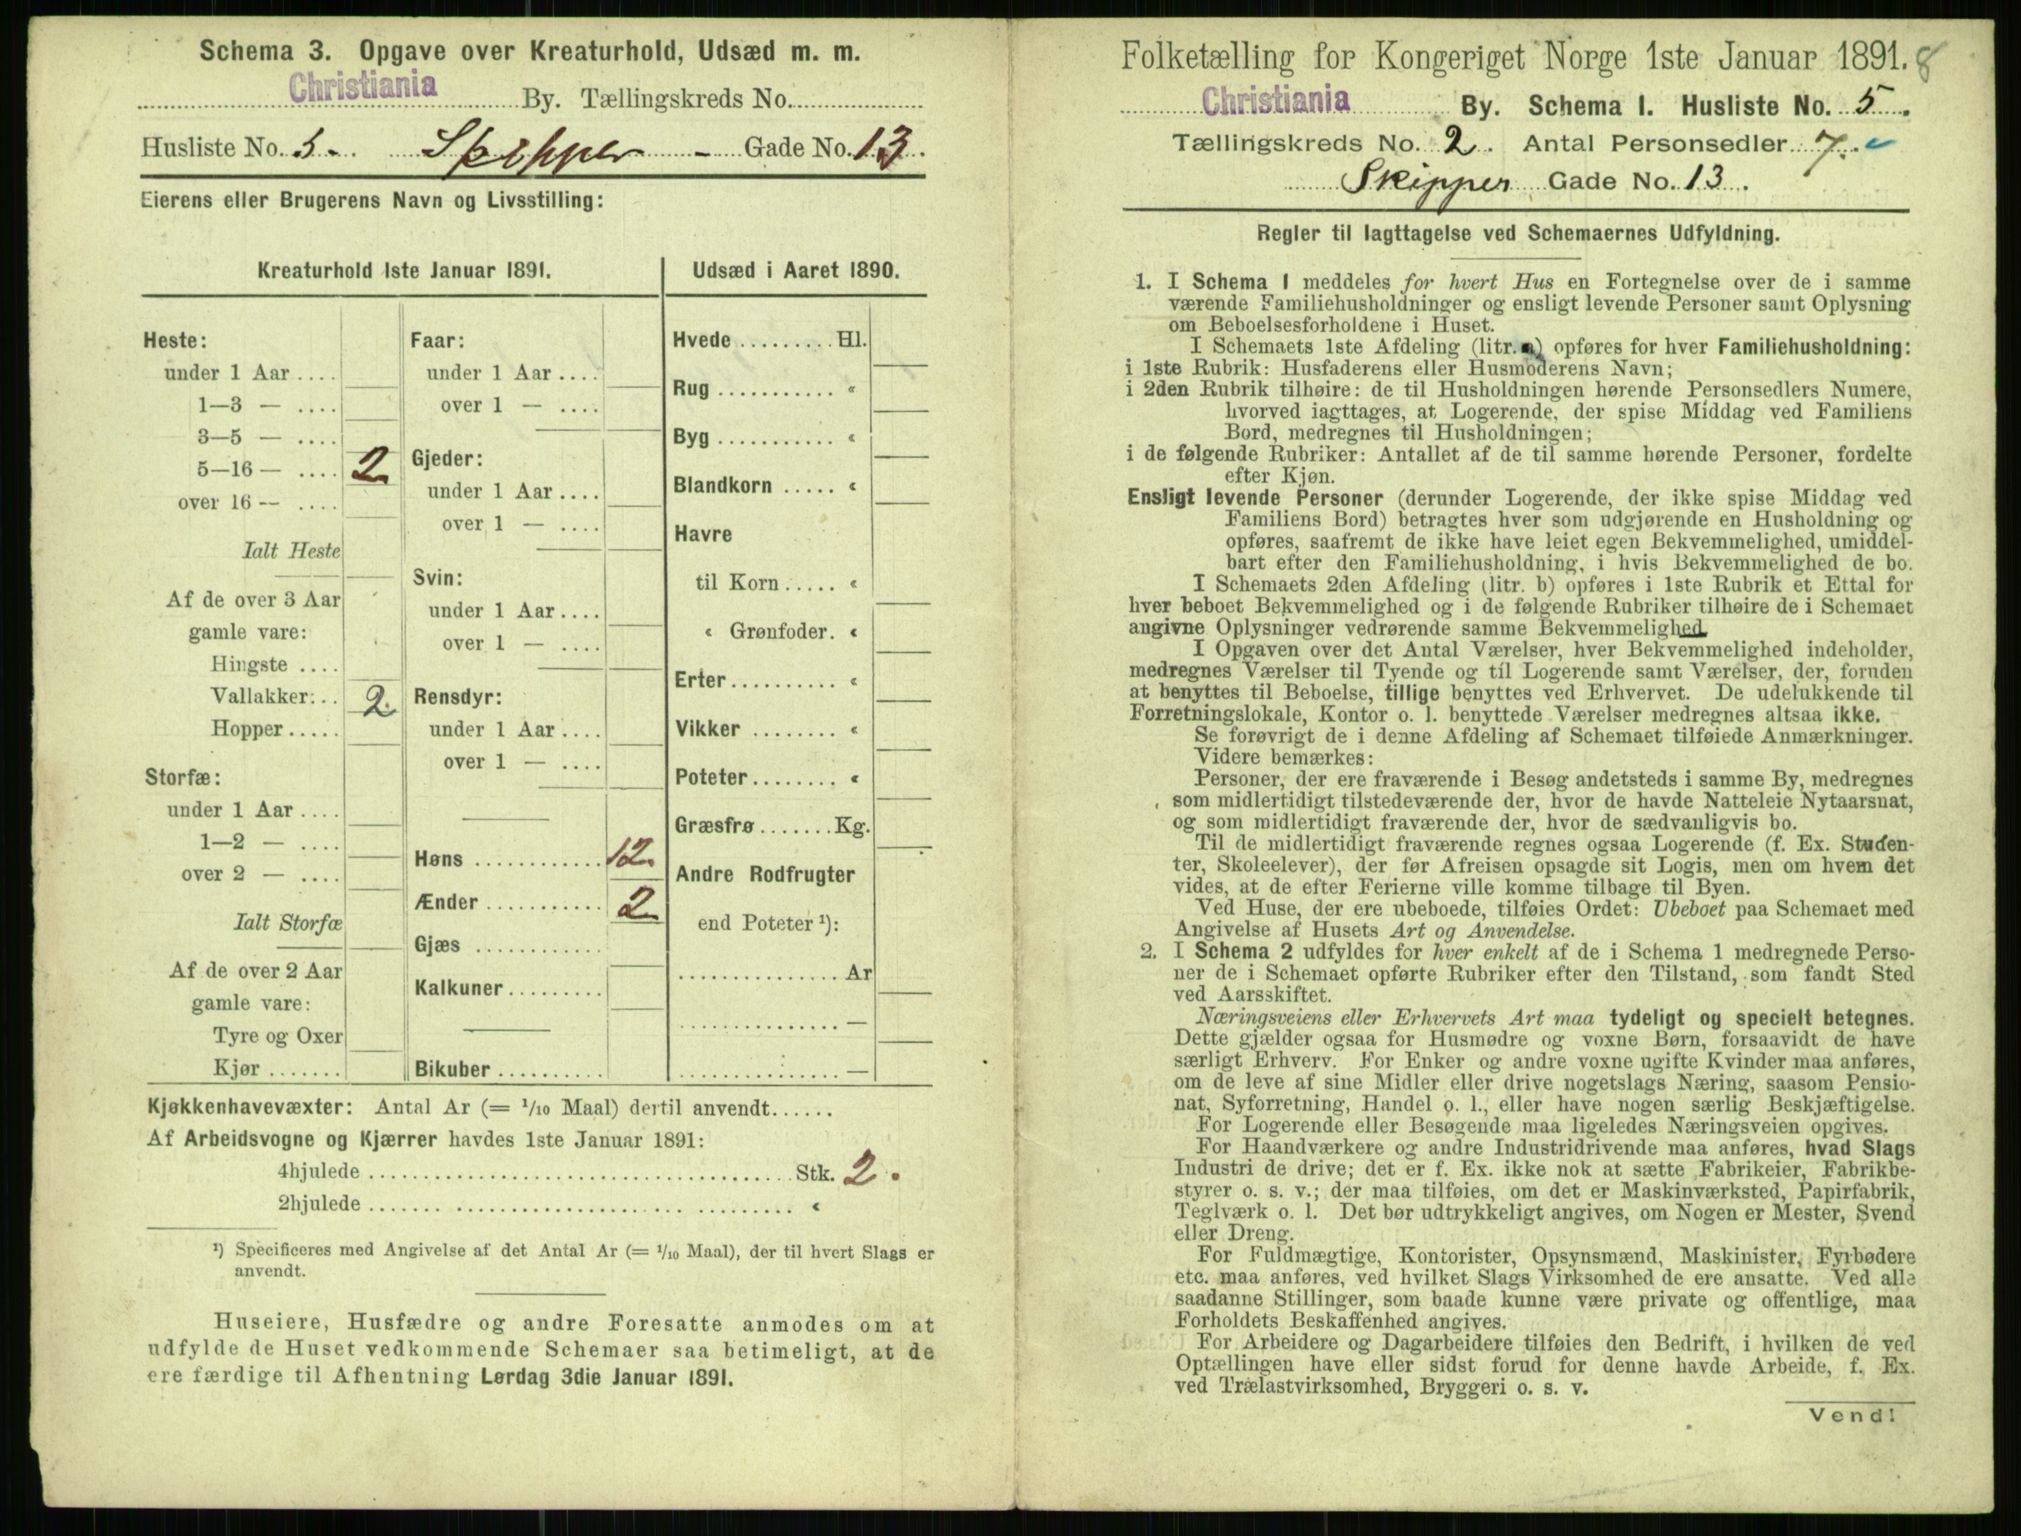 Schema 3. Opgave over Kreaturhold, Udsæd m. m.
Christiania By. Tællingskreds No.
Husliste No. 5 Skipper Gade No. 13.
Eierens eller Brugerens Navn og Livsstilling:
Kreaturhold 1ste Januar 1891.
Heste:
under 1 Aar ....
1—3 — ....
3—5 — ....
5—16 — .... 2
over 16 — ....
Ialt Heste
Af de over 3 Aar
gamle vare:
Hingste ....
Vallakker... 2.
Hopper.....
Storfæ:
under 1 Aar ....
1—2 — ....
over 2 — ....
Ialt Storfæ
Af de over 2 Aar
gamle vare:
Tyre og Oxer
Kjør .......
Faar:
under 1 Aar ....
over 1 — ....
Gjeder:
under 1 Aar ....
over 1 — ....
Svin:
under 1 Aar ....
over 1 — ....
Rensdyr:
under 1 Aar ....
over 1 — ....
Høns ............ 12
Ænder ........... 2
Gjæs ............
Kalkuner.........
Bikuber ..........
Udsæd i Aaret 1890.
Hvede ......... Hl.
Rug ........... «
Byg ........... «
Blandkorn ..... «
Havre
til Korn ..... «
« Grønfoder. «
Erter.......... «
Vikker ........ «
Poteter........ «
Græsfrø.......Kg.
Andre Rodfrugter
end Poteter ¹):
............... Ar
............... —
............... —
Kjøkkenhavevæxter: Antal Ar (= 1/10 Maal) dertil anvendt......
Af Arbeidsvogne og Kjærrer havdes 1ste Januar 1891:
4hjulede ........................................ Stk. 2.
2hjulede ........................................ «
¹) Specificeres med Angivelse af det Antal Ar (= 1/10 Maal), der til hvert Slags er
anvendt.
Huseiere, Husfædre og andre Foresatte anmodes om at
udfylde de Huset vedkommende Schemaer saa betimeligt, at de
ere færdige til Afhentning Lørdag 3die Januar 1891.
Folketælling for Kongeriget Norge 1ste Januar 1891. 8
Christiania By. Schema 1. Husliste No. 5.
Tællingskreds No. 2. Antal Personsedler 7.
Skipper Gade No. 13.
Regler til Iagttagelse ved Schemaernes Udfyldning.
1. I Schema 1 meddeles for hvert Hus en Fortegnelse over de i samme
værende Familiehusholdninger og ensligt levende Personer samt Oplysning
om Beboelsesforholdene i Huset.
I Schemaets 1ste Afdeling (litr. a) opføres for hver Familiehusholdning:
i 1ste Rubrik: Husfaderens eller Husmoderens Navn;
i 2den Rubrik tilhøire: de til Husholdningen hørende Personsedlers Numere,
hvorved iagttages, at Logerende, der spise Middag ved Familiens
Bord, medregnes til Husholdningen;
i de følgende Rubriker: Antallet af de til samme hørende Personer, fordelte
efter Kjøn.
Ensligt levende Personer (derunder Logerende, der ikke spise Middag ved
Familiens Bord) betragtes hver som udgjørende en Husholdning og
opføres, saafremt de ikke have leiet egen Bekvemmelighed, umiddel-
bart efter den Familiehusholdning, i hvis Bekvemmelighed de bo.
I Schemaets 2den Afdeling (litr. b) opføres i 1ste Rubrik et Ettal for
hver beboet Bekvemmelighed og i de følgende Rubriker tilhøire de i Schemaet
angivne Oplysninger vedrørende samme Bekvemmelighed.
I Opgaven over det Antal Værelser, hver Bekvemmelighed indeholder,
medregnes Værelser til Tyende og til Logerende samt Værelser, der, foruden
at benyttes til Beboelse, tillige benyttes ved Erhvervet. De udelukkende til
Forretningslokale, Kontor o. l. benyttede Værelser medregnes altsaa ikke.
Se forøvrigt de i denne Afdeling af Schemaet tilføiede Anmærkninger.
Videre bemærkes:
Personer, der ere fraværende i Besøg andetsteds i samme By, medregnes
som midlertidigt tilstedeværende der, hvor de havde Natteleie Nytaarsnat,
og som midlertidigt fraværende der, hvor de sædvanligvis bo.
Til de midlertidigt fraværende regnes ogsaa Logerende (f. Ex. Studen-
ter, Skoleelever), der før Afreisen opsagde sit Logis, men om hvem det
vides, at de efter Ferierne ville komme tilbage til Byen.
Ved Huse, der ere ubeboede, tilføies Ordet: Ubeboet paa Schemaet med
Angivelse af Husets Art og Anvendelse.
2. I Schema 2 udfyldes for hver enkelt af de i Schema 1 medregnede Perso-
ner de i Schemaet opførte Rubriker efter den Tilstand, som fandt Sted
ved Aarsskiftet.
Næringsveiens eller Erhvervets Art maa tydeligt og specielt betegnes.
Dette gjælder ogsaa for Husmødre og voxne Børn, forsaavidt de have
særligt Erhverv. For Enker og andre voxne ugifte Kvinder maa anføres,
om de leve af sine Midler eller drive nogetslags Næring, saasom Pensio-
nat, Syforretning, Handel o. l., eller have nogen særlig Beskjæftigelse.
For Logerende eller Besøgende maa ligeledes Næringsveien opgives.
For Haandværkere og andre Industridrivende maa anføres, hvad Slags
Industri de drive; det er f. Ex. ikke nok at sætte Fabrikeier, Fabrikbe-
styrer o. s. v.; der maa tilføies, om det er Maskinværksted, Papirfabrik,
Teglværk o. l. Det bør udtrykkeligt angives, om Nogen er Mester, Svend
eller Dreng.
For Fuldmægtige, Kontorister, Opsynsmænd, Maskinister, Fyrbødere
etc. maa anføres, ved hvilket Slags Virksomhed de ere ansatte. Ved alle
saadanne Stillinger, som baade kunne være private og offentlige, maa
Forholdets Beskaffenhed angives.
For Arbeidere og Dagarbeidere tilføies den Bedrift, i hvilken de ved
Optællingen have eller sidst forud for denne havde Arbeide, f. Ex.
ved Trælastvirksomhed, Bryggeri o. s. v.
Vend!